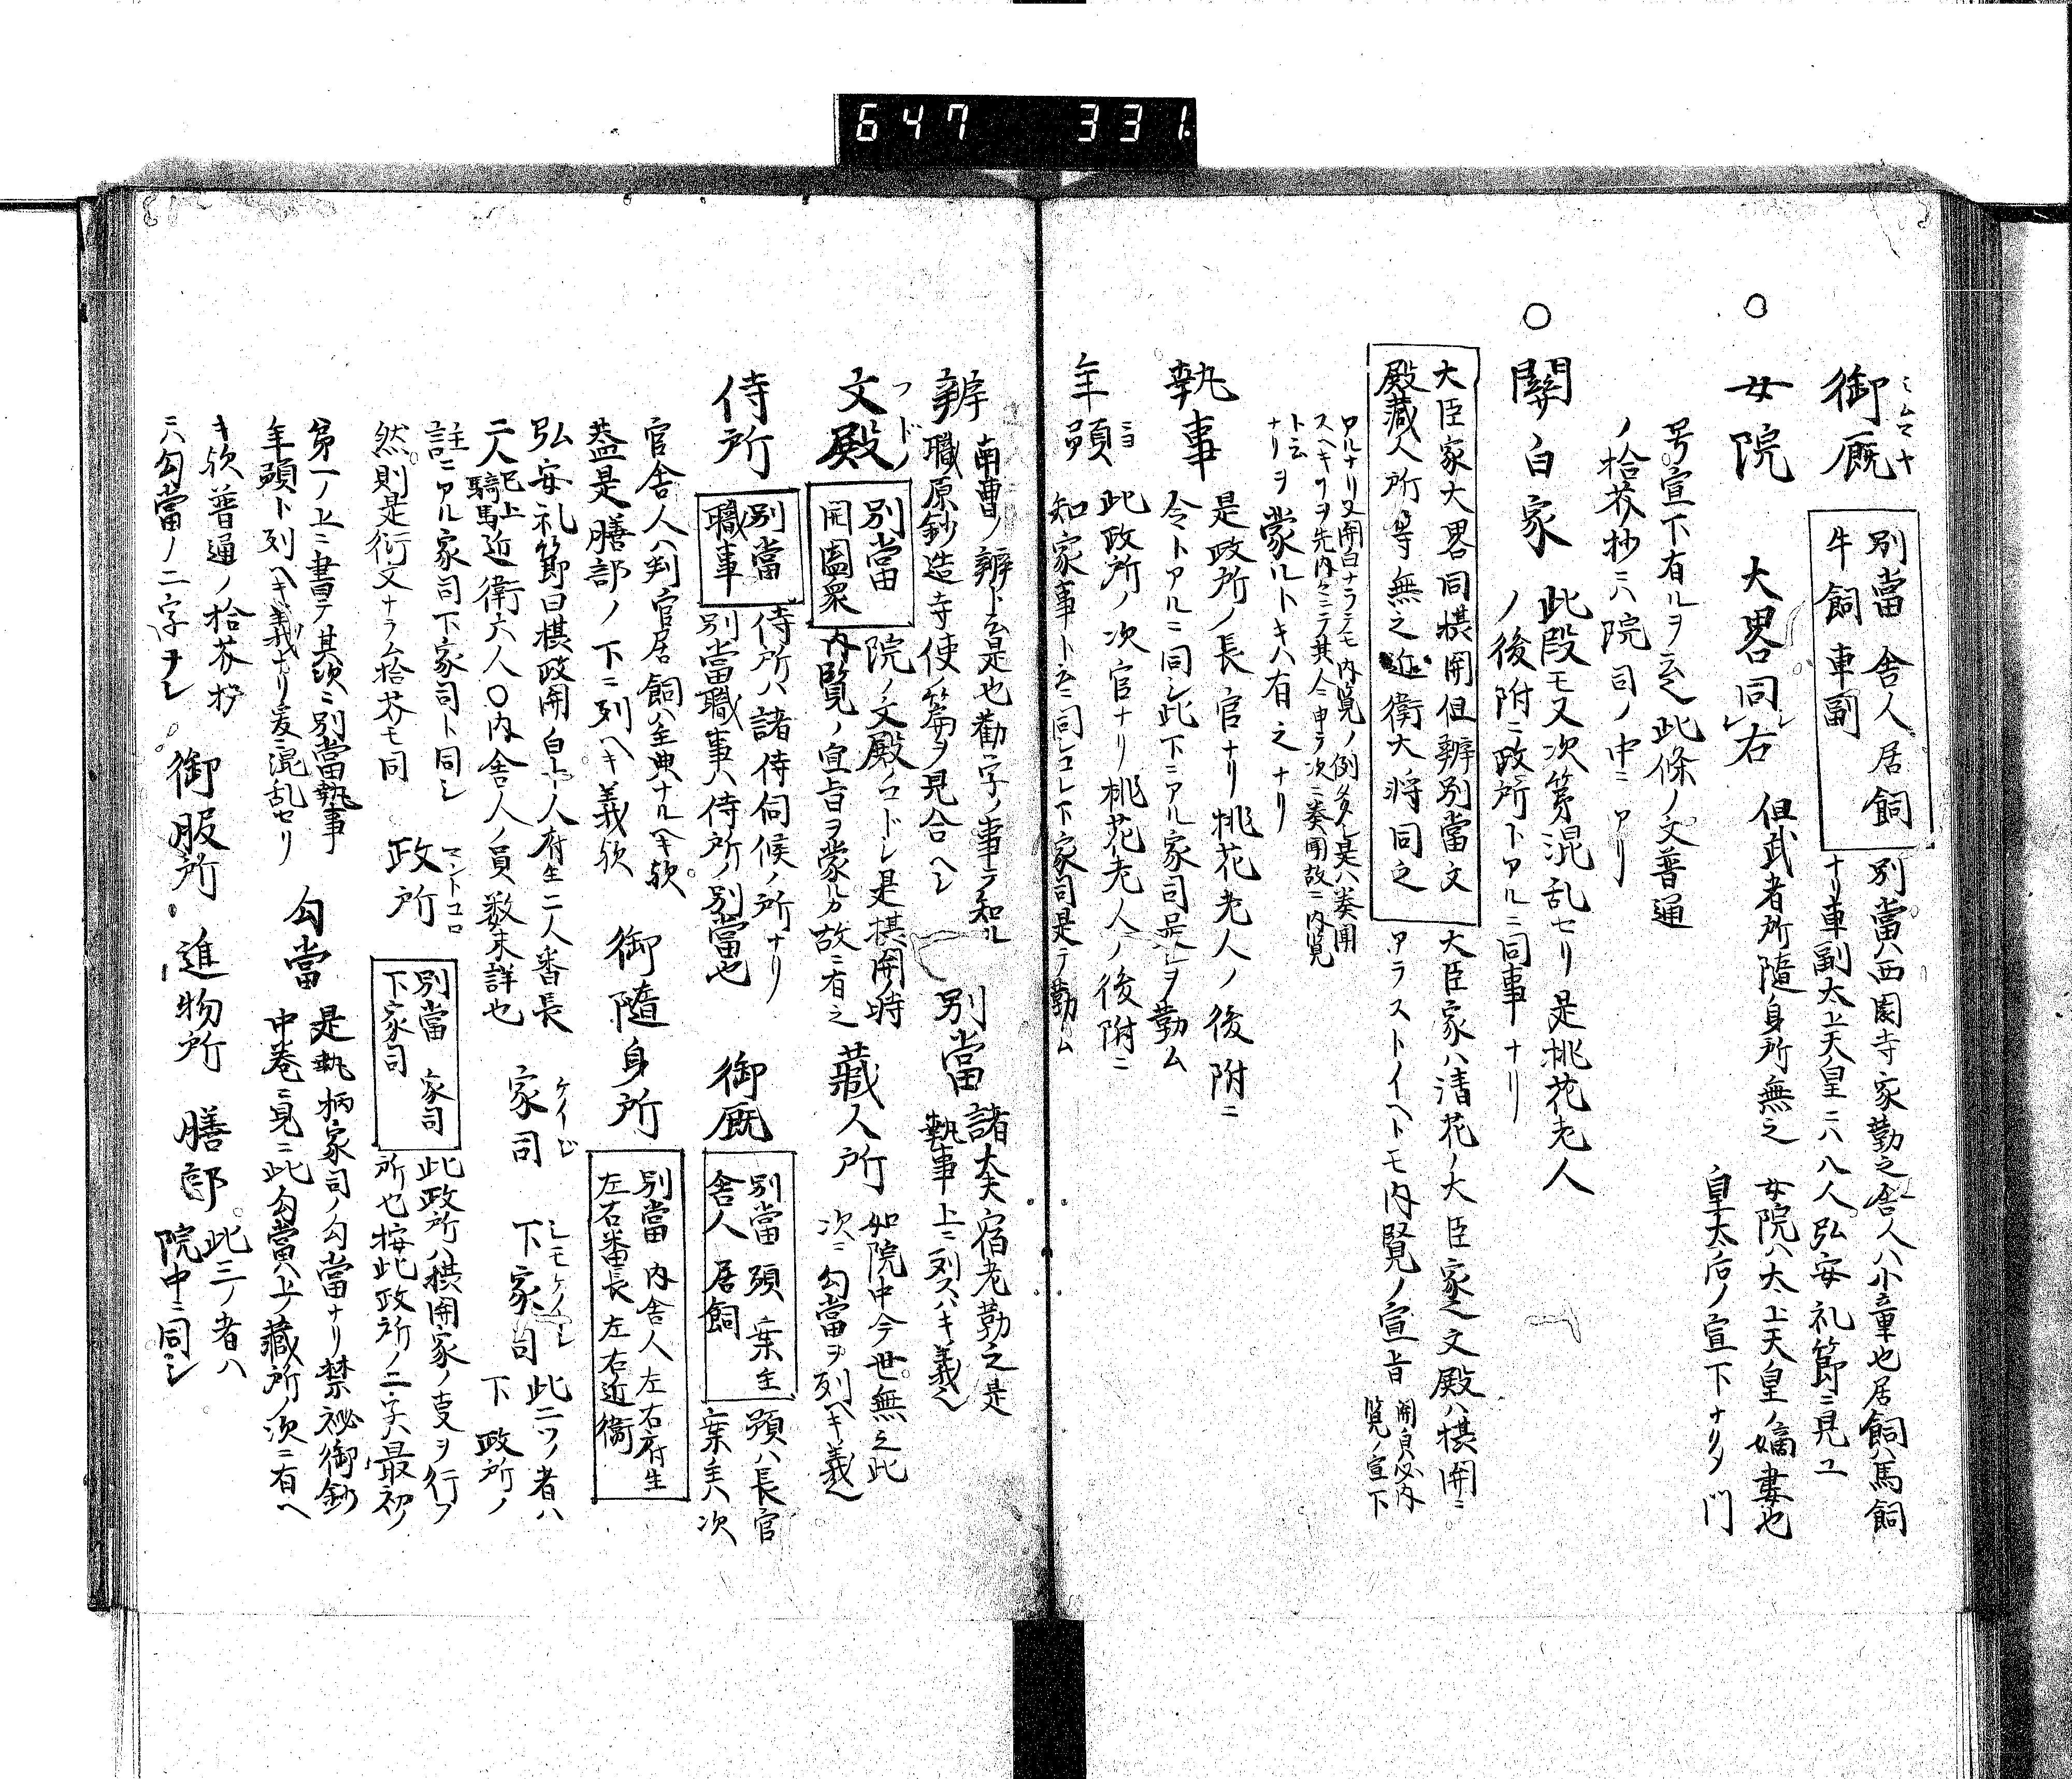 647 331
御厩
別當 舎人 居飼
牛飼 車副
別當ハ西園寺家勤之舎人ハ小童也居飼ハ馬飼
ナリ車副太上天皇ニハ八人弘安礼節ニ見ユ
○女院 大畧同右 但武者所隨身所無之
女院ハ太上天皇ノ嫡妻也
皇太后ノ宣下ナリタ門
号宣下有ルヲ云之此條ノ文普通
ノ拾芥抄ニハ院司ノ中ニアリ
○關白家
此段モ又次第混乱セリ是桃花老人
ノ後附ニ政所トアルニ同事ナリ
大臣家大畧同摂関但辨別當文
殿藏人所等無之近衛大将同之
大臣家ハ清花ノ大臣家之文殿ハ摂関ニ
アラストイヘトモ内覧ノ宣旨
関白必内
覧ノ宣下
アルナリ又関白ナラテモ内覧ノ例多シ是ハ奏聞
スヘキヿヲ先内々ニテ其人ニ申ラ次ニ奏聞故ニ内覧
ト云
ナリヲ蒙ルトキハ有之ナリ
執事
是政所ノ長官ナリ桃花老人ノ後附ニ
令トアルニ同シ此下ニアル家司是ヲ勤ム
年預
此政所ノ次官ナリ桃花老人ノ後附ニ
知家事ト云ニ同シコレ下家司是ヲ勤ム
辨
南曹ノ辨ト云是也勧学ノ事ヲ知ル
職原鈔造寺使ノ篇ヲ見合ヘシ
別當
諸大夫宿老勤之是
執事上ニ列スヘキ義也
文殿
フドノ
別當
開闔衆
院ノ文殿ノコトシ是摂関ノ時
内覧ノ宣旨ヲ蒙ルカ故ニ有之
藏人所
如院中今世無之此
次ニ勾當ヲ列ヘキ義也
侍所
別當
職事
侍所ハ諸侍伺候ノ所ナリ
別當職事ハ侍所ノ別當也
御厩
別當 預 案主
舎人 居飼
預ハ長官
案主ハ次
官舎人ハ判官居飼ハ主典ナルヘキ欤
蓋是膳部ノ下ニ列ヘキ義欤
御隨身所
別當 内舎人 左右府生
左右番長 左右近衛
弘安礼節曰摂政関白十人府生二人番長
二人已上騎馬近衛六人○内舎人ノ員数未詳也
家司
ケイシ
下家司
シモケイシ
此二ツノ者ハ
下政所ノ
註ニアル家司下家司ト同シ
然則是衍文ナラム拾芥モ同
政所
マントコロ
別當 家司
下家司
此政所ハ摂関家ノ支ヲ行フ
所也按此政所ノ二字ハ最初ノ
第一ノ上ニ書テ其次ニ別當執事
年預ト列ヘキ義ナリ爰ニ混乱セリ
勾當
是執柄家司ノ勾當ナリ禁祕御鈔
中巻ニ見ユ此勾當ハ上ノ藏所ノ次ニ有ヘ
キ欤普通ノ拾芥抄
ニハ勾當ノ二字ナシ
御服所 進物所 膳部
此三ノ者ハ
院中ニ同シ